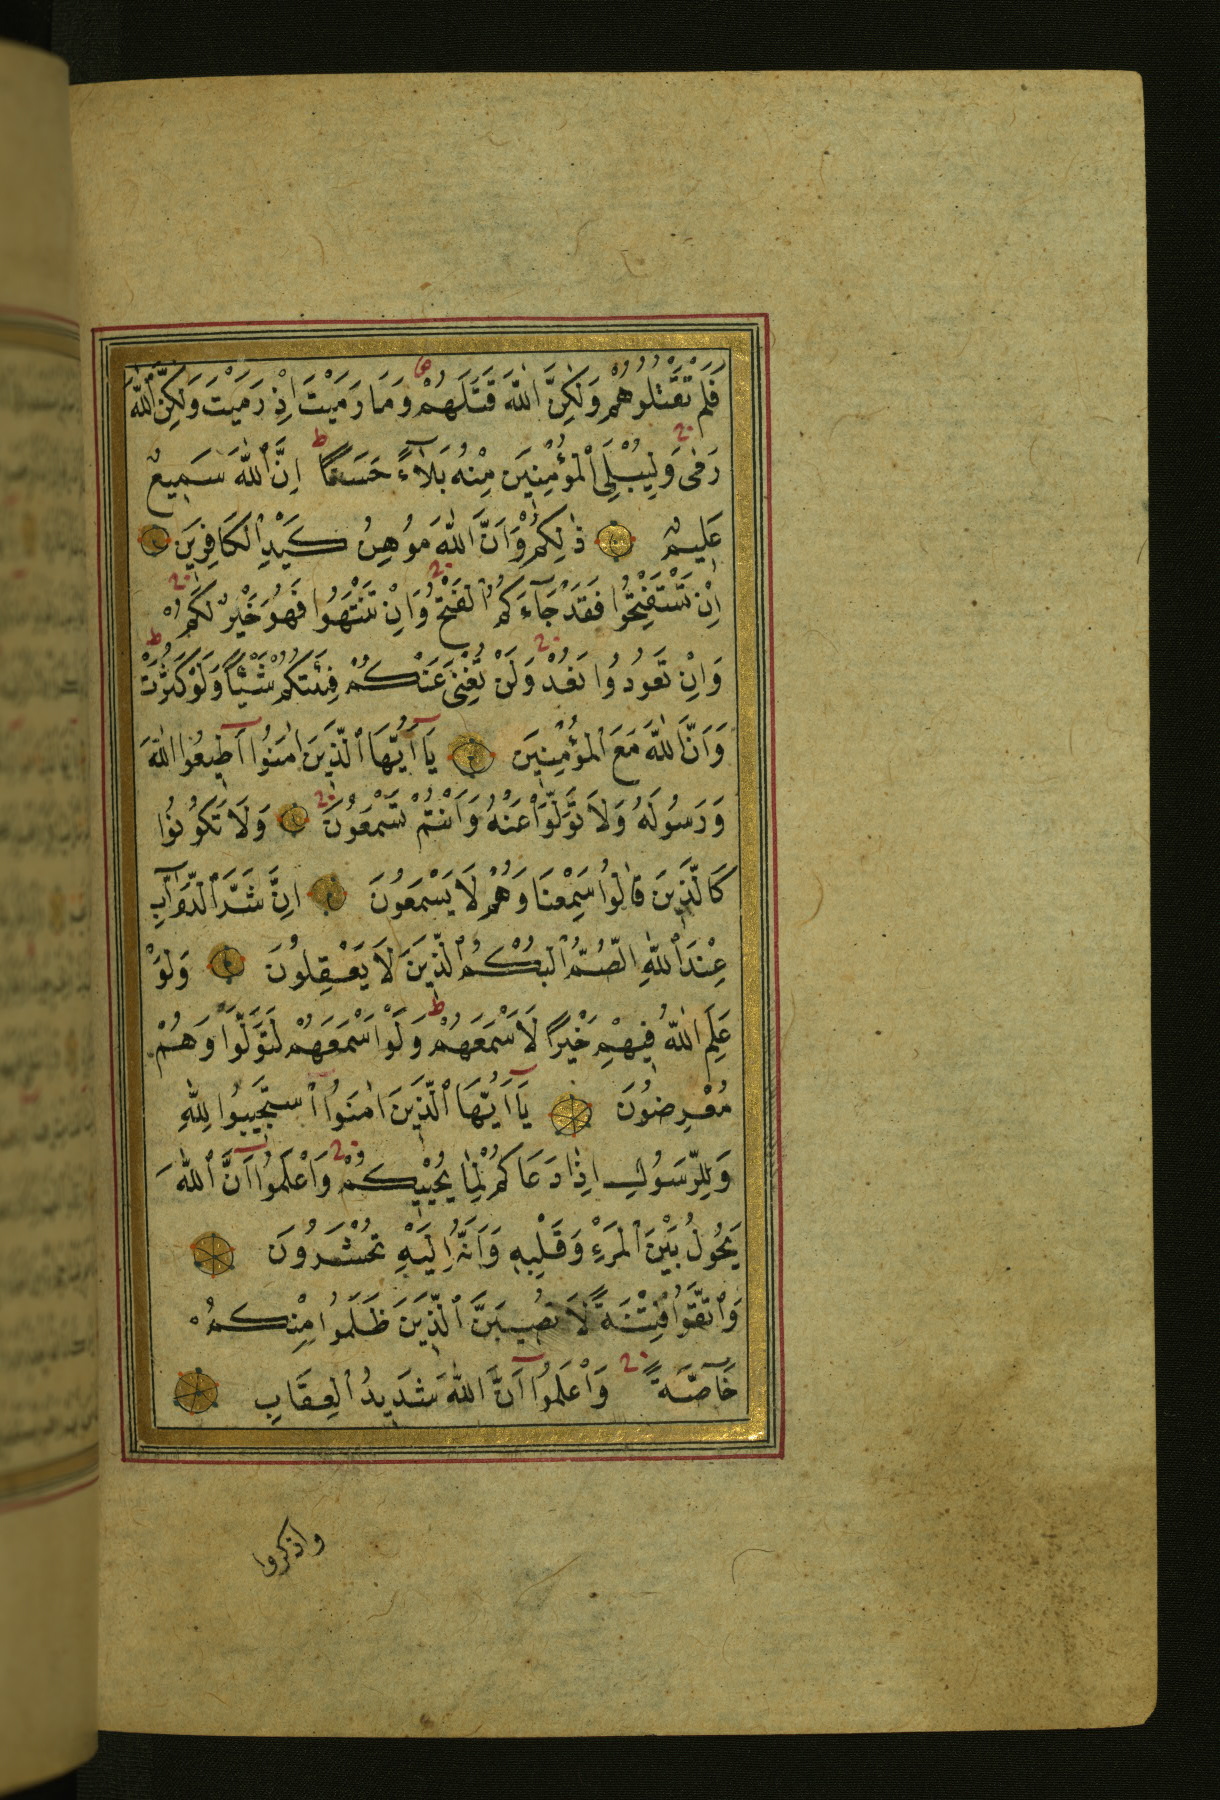 فَلَمْ تَقْتُلُوهُمْ وَلٰكِنَّ اللّٰهَ قَتَلَهُمْ ص وَمَا رَمَيْتَ اِذْ رَمَيْتَ وَلٰكِنَّ اللّٰهَ
رَمٰى ج وَلِيُبْلِيَ الْمُؤْمِنِينَ مِنْهُ بَلَآءً حَسَنًا ط اِنَّ اللّٰهَ سَمِيعٌ
عَلِيمٌ ذٰلِكُمْ وَاَنَّ اللّٰهَ مُوهِنُ كَيْدِ الْكَافِرِينَ
اِنْ تَسْتَفْتِحُوا فَقَدْ جَآءَكُمُ الْفَتْحُ ج وَاِنْ تَنْتَهُوا فَهُوَ خَيْرٌ لَكُمْ ج
وَاِنْ تَعُودُوا نَعُدْ ج وَلَنْ تُغْنِيَ عَنْكُمْ فِئَتُكُمْ شَيْئًا وَلَوْ كَثُرَتْ ط
وَاَنَّ اللّٰهَ مَعَ الْمُؤْمِنِينَ يَآ اَيُّهَا الَّذِينَ اٰمَنُوا اَطِيعُوا اللّٰهَ
وَرَسُولَهُ وَلَا تَوَلَّوْا عَنْهُ وَاَنْتُمْ تَسْمَعُونَ ج وَلَا تَكُونُوا
كَالَّذِينَ قَالُوا سَمِعْنَا وَهُمْ لَا يَسْمَعُونَ اِنَّ شَرَّ الدَّوَآبِّ
عِنْدَ اللّٰهِ الصُّمُّ الْبُكْمُ الَّذِينَ لَا يَعْقِلُونَ وَلَوْ
عَلِمَ اللّٰهُ فِيهِمْ خَيْرًا لَاَسْمَعَهُمْ ط وَلَوْ اَسْمَعَهُمْ لَتَوَلَّوْا وَهُمْ
مُعْرِضُونَ يَآ اَيُّهَا الَّذِينَ اٰمَنُوا اسْتَجِيبُوا لِلّٰهِ
وَلِلرَّسُولِ اِذَا دَعَاكُمْ لِمَا يُحْيِيكُمْ ج وَاعْلَمُوا اَنَّ اللّٰهَ
يَحُولُ بَيْنَ الْمَرْءِ وَقَلْبِهِ وَاَنَّهُ اِلَيْهِ تُحْشَرُونَ
وَاتَّقُوا فِتْنَةً لَا تُصِيبَنَّ الَّذِينَ ظَلَمُوا مِنْكُمْ
خَآصَّةً ج وَاعْلَمُوا اَنَّ اللّٰهَ شَدِيدُ الْعِقَابِ
واذكروا